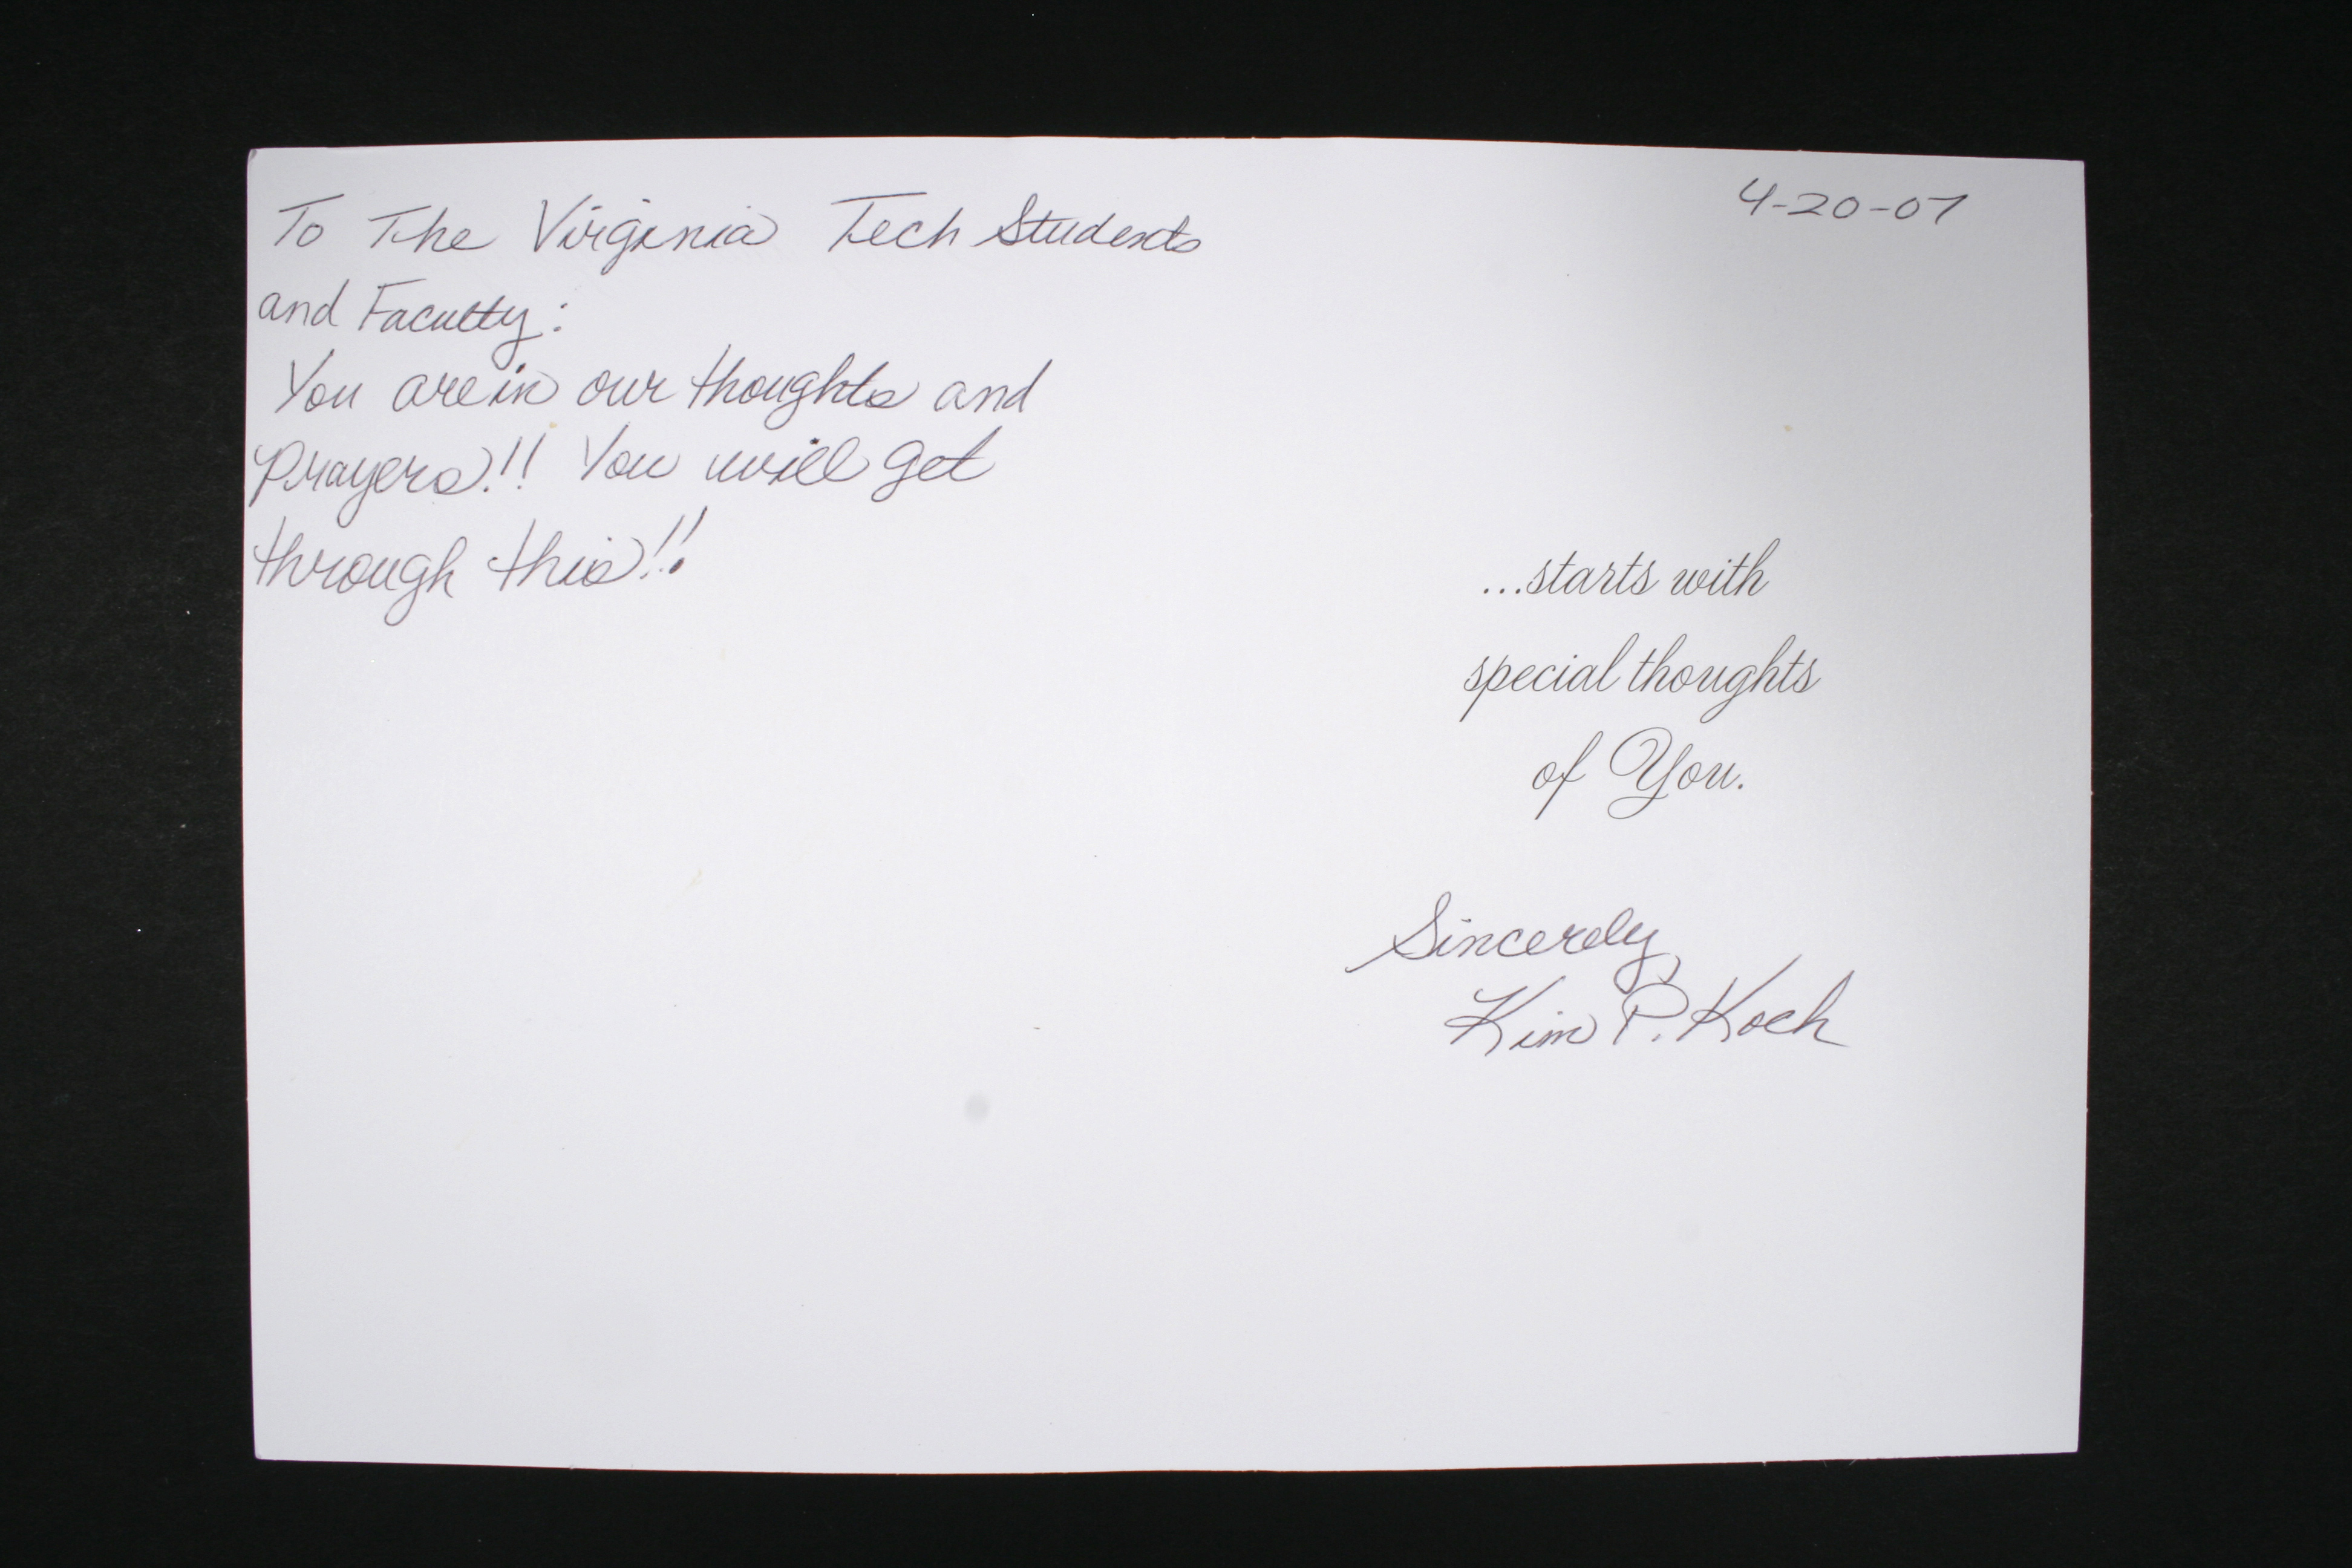 To The Virginia Tech Students
and Faculty:
You are in our thoughts and
Prayers!! You will get
through this!!
4-20-07
...starts with
special thoughts
of You.
Sincerely,
Kim P. Koch